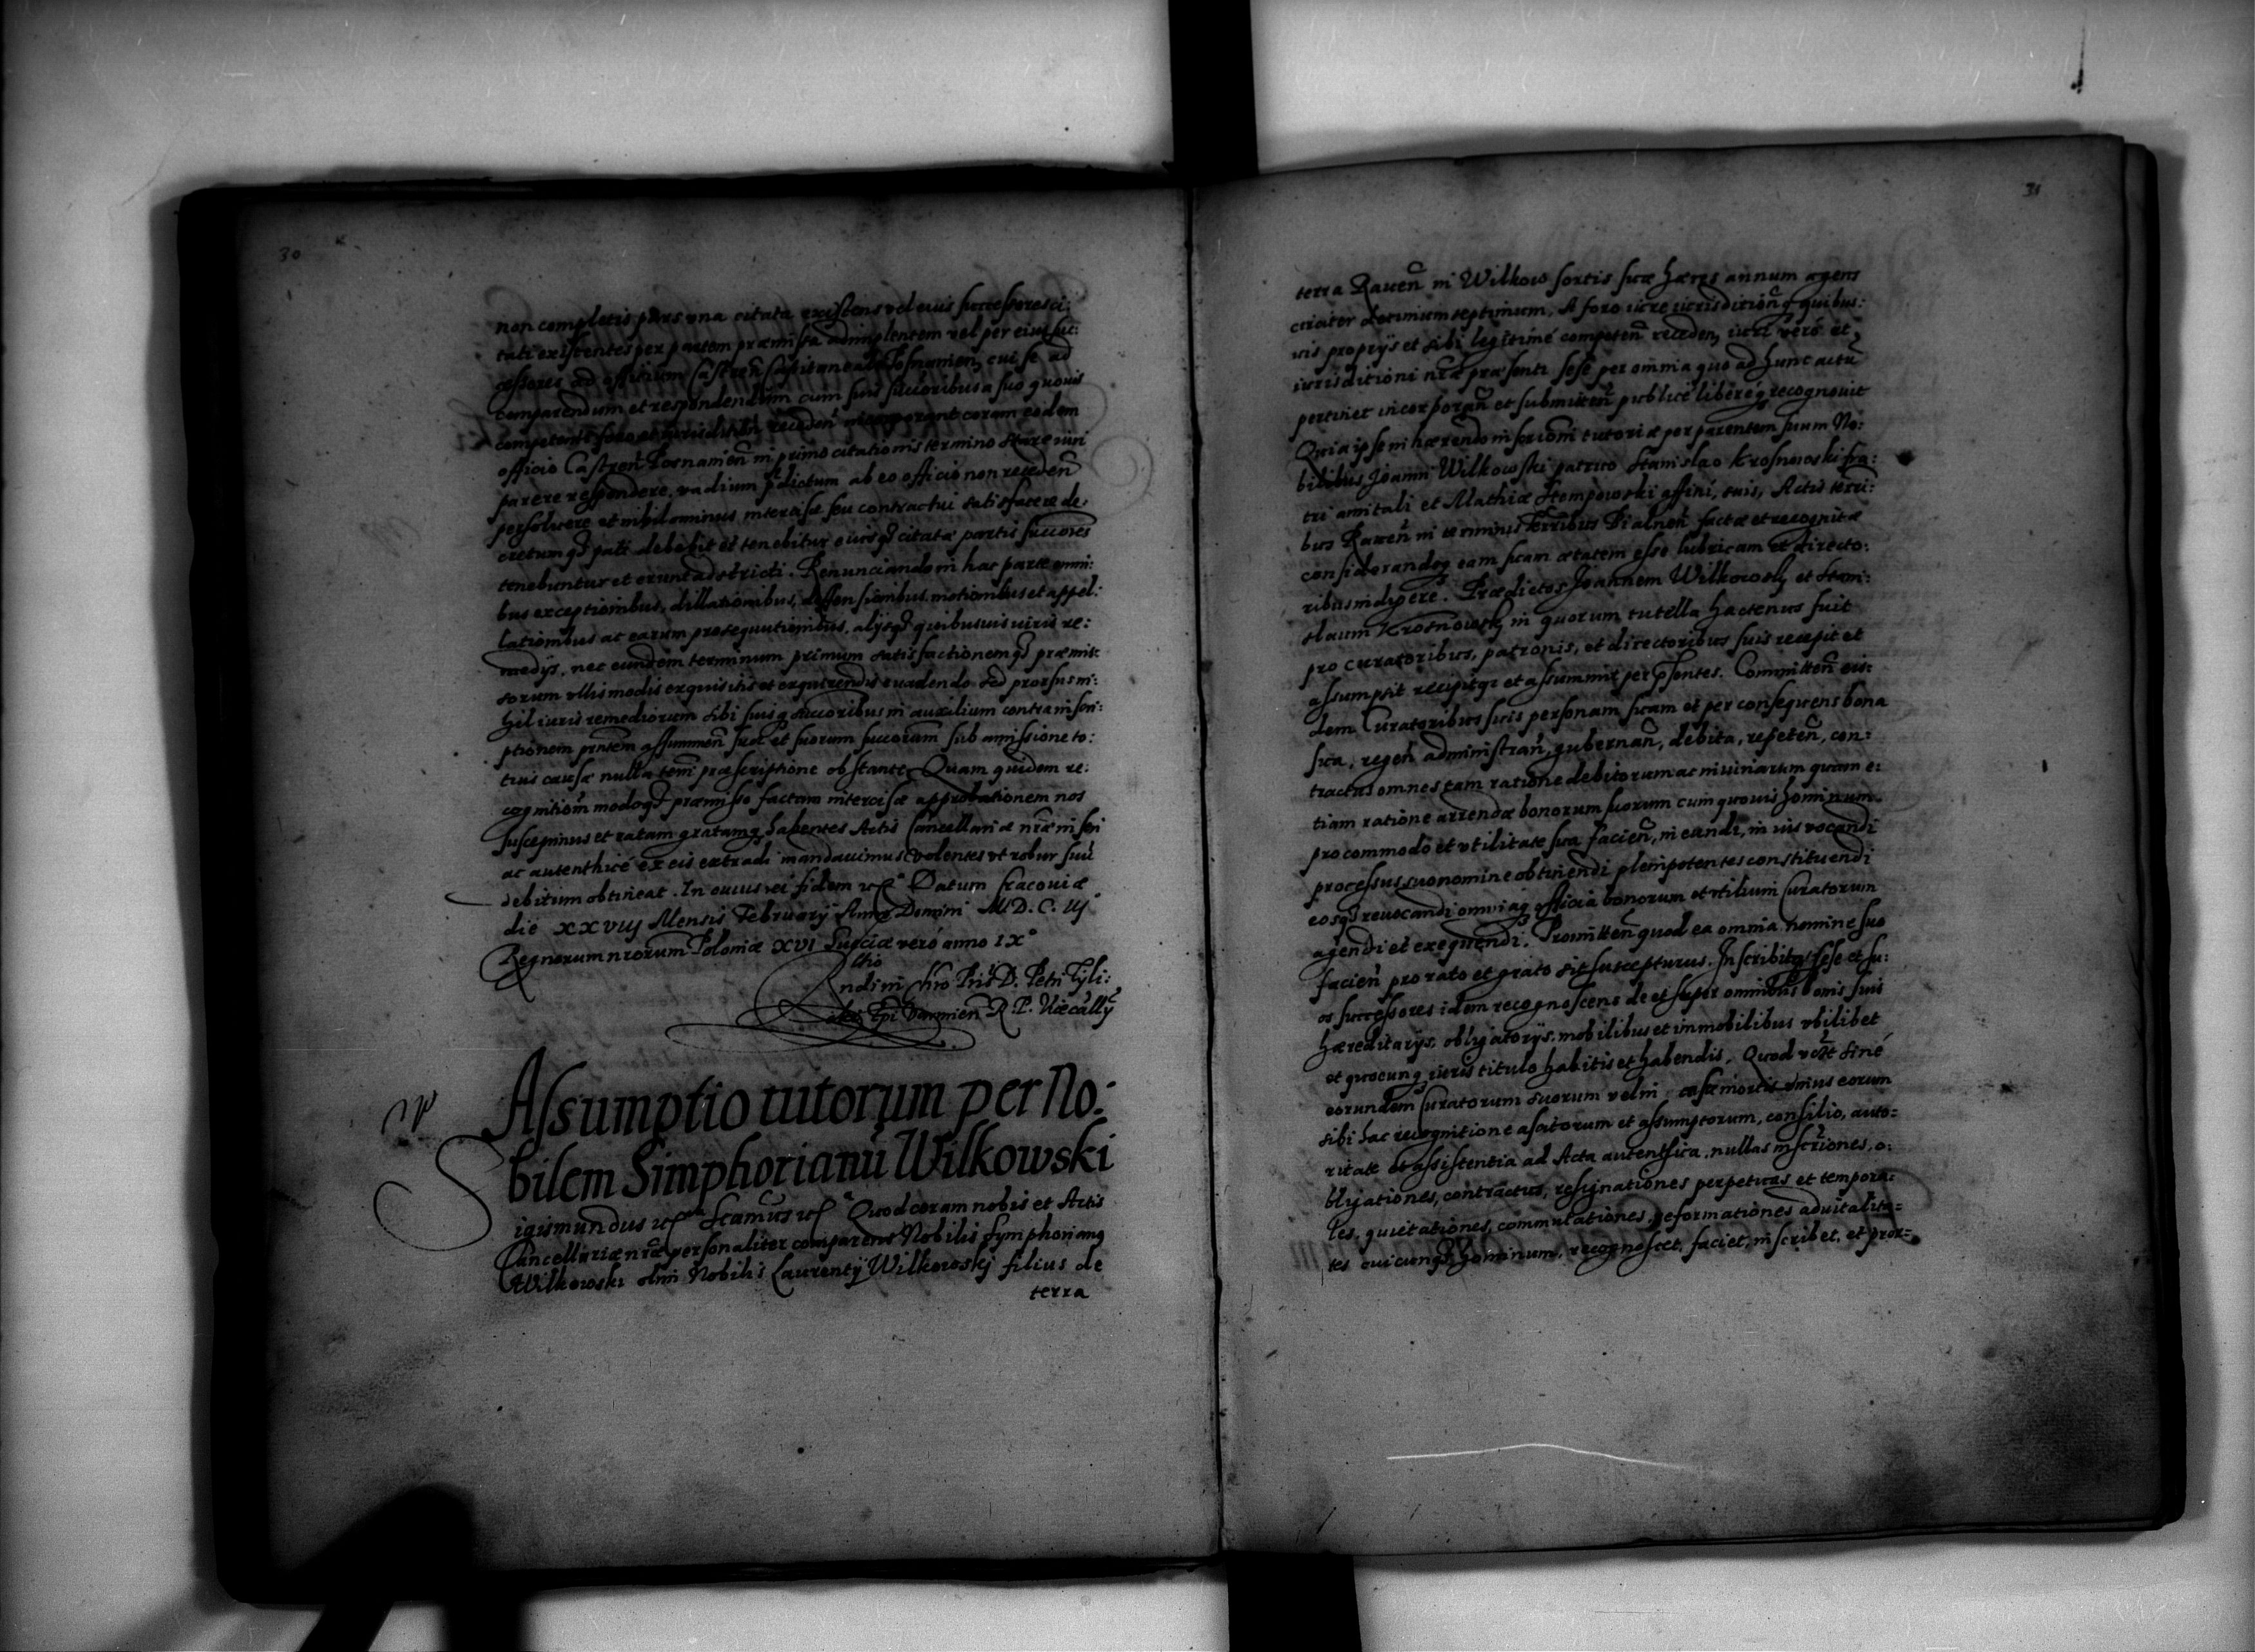 30
non completis pars una citata existens vel eius successores ci:
tati existentes per partem praemissa adimplentem vel per eius suc:
cessores ad officium Castren Capitaneale Posnanien, cui se ad
comparendum et respondendum cum suis succoribus a suo quovis
competenti foro et iurisditione receden incorporant coram eodem
officio Castren Posnanien in primo citationis termino stare iuri
parere respondere, vadium pdictum ab eo officio non receden
persolvere et nihilominus intercisae seu contractui satisfacere de:
cretumq pati debebit et tenebitur eiusq citatae partis succores
tenebuntur et erunt adstricti. Renunciando in hac parte omni:
bus exceptionibus, dillationibus, deffensionibus, motionibus et appel:
lationibus ac earum prosequutionibus, alijsq quibusvis iuris re:
medijs, nec eundem terminum primum satisfactionemq praemis:
sorum ullis modis exquisitis et exquirendis evadendo. Sed prorsus ni:
hil iuris remediorum sibi suisq succoribus in auxilium contra inscri:
ptionem pntem assummen sub et suorum succorum sub amissione to:
tius causae nulla temi praescriptione obstante. Quam quidem re:
cognitiom modoq praemisso factam intercisae approbationem nos
suscepimus et ratam gratamq habentes Actis Cancellariae nrae inscri
ac autenthice ex eis extradi mandavimus volentes ut robur suu
debitum obtineat. In cuius rei fidem etc Datum Cracoviae
die XXVIIJ Mensis Februarij Anno Domini MD.C.IIJ
Regnorum nrorum Poloniae XVI Sueciae vero anno IX°
Rltio
ndi in Chro Pris D. Petri Tyli:
cki Epi Varmien R. P. Vicecally
Assumptio tutorum per No:
bilem Simphorianu Wilkowski
Sigismundus etc Scamus etc Quod coram nobis et Actis
Cancellariae nrae personaliter comparens Nobilis Symphorianq
Wilkowski olim Nobilis Laurentij Wilkowskj filius de
terra
31
terra Raven in Wilkow sortis suae haeres annum agens
circiter decimum septimum. A foro iure iurisditionq quibus:
vis proprijs et sibi legitime competen receden, iuri vero et
iurisditioni nrae praesenti sese per omnia quo ad hunc actu
pertinet incorporan et submitten publice libereq recognovit
Quia ipse inhaerendo inscriomi tutoriae per parentem suum No:
bilibus Joanni Wilkowski patruo Stanislao Krosnowski fra:
tri amitali et Mathiae Stempowski affini, suis, Actis terri:
bus Raven in terminis terribus Bialnen factae et recognitae
considerandoq eam suam aetatem esse lubricam et directo:
ribus indigere. Praedictos Joannem Wilkowskj et Stani:
slaum Krosnowskj in quorum tutella hactenus fuit
pro curatoribus, patronis, et directoribus suis recepit et
assumpsit recipitqz et assummit per psentes. Committen eis:
dem Curatoribus suis personam suam et per consequens bona
sua, regen administran, gubernan, debita, repeten, con:
tractus omnes tam ratione debitorum ac iniuriarum quam e:
tiam ratione arrendae bonorum suorum cum quovis hominum
pro commodo et utilitate sua facien, ineundi, in ius vocandi
processus suo nomine obtinendi plenipotentes constituendi
eosq revocandi omniaq officia bonorum et utilium Curatorum
agendi et exequendi. Promitten quod ea omnia nomine suo
facien pro rato et grato sit suscepturus. Inscribitqz sese et su:
os successores idem recognoscens de et super omnibus bonis suis
haereditarijs, obligatorijs, mobilibus et immobilibus ubilibet
et quocunq iuris titulo habitis et habendis. Quod sine
eorundem Curatorum suorum vel in casu mortis unius eorum
sibi hac recognitione ascitorum et assumptorum, consilio, auto:
ritate et assistentia ad Acta autenthica, nullas inscriones, o:
bligationes, contractus, resignationes perpetuas et tempora:
les, quietationes, commutationes, reformationes advitalita:
tes cuicunq hominum, recognoscet, faciet, inscribet, et pror: